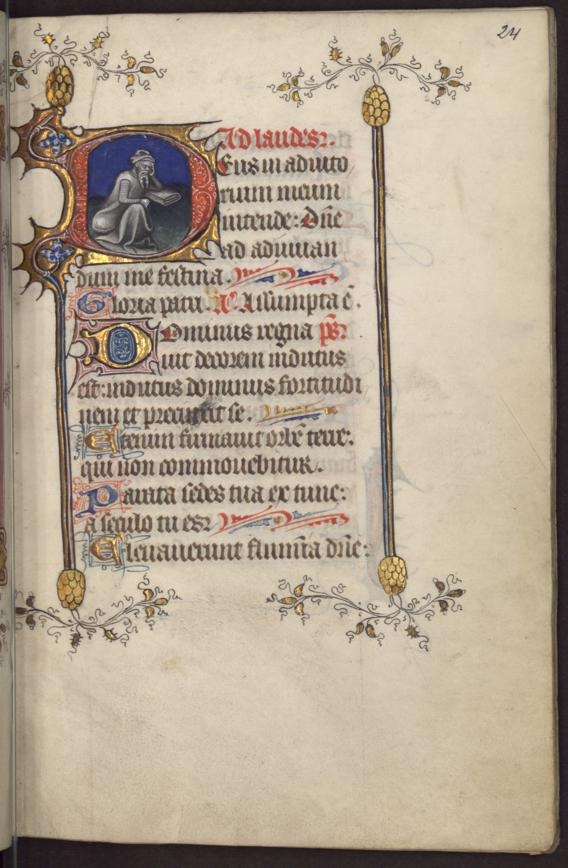 24
Ad laudes.
Deus in adiuto
rium meum
intende: Dñe
ad adiuuan
dum me festina.
Gloria patri. Añ. Assumpta ē.
Dominus regna p̄s.
uit decorem indutus
est: indutus dominus fortitudi
nem et precinxit se.
Etenim firmauit orbē terre:
qui non commouebitur.
Parata sedes tua ex tunc:
a seculo tu es.
Eleuauerunt flumīa dñe: